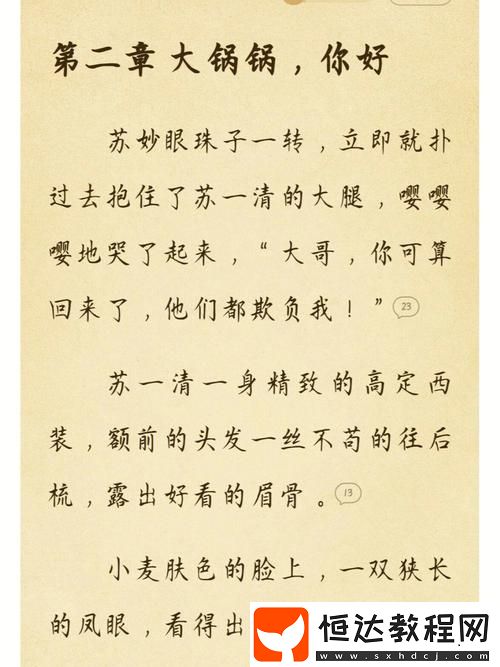 第二章 大锅锅，你好
苏妙眼珠子一转，立即就扑
过去抱住了苏一清的大腿，嘤嘤
嘤地哭了起来，“大哥，你可算
回来了，他们都欺负我！” 23
苏一清一身精致的高定西
装，额前的头发一丝不苟的往后
梳，露出好看的眉骨。 13
小麦肤色的脸上，一双狭长
的凤眼，看得出
恒达教程网
www.sxhdcj.com